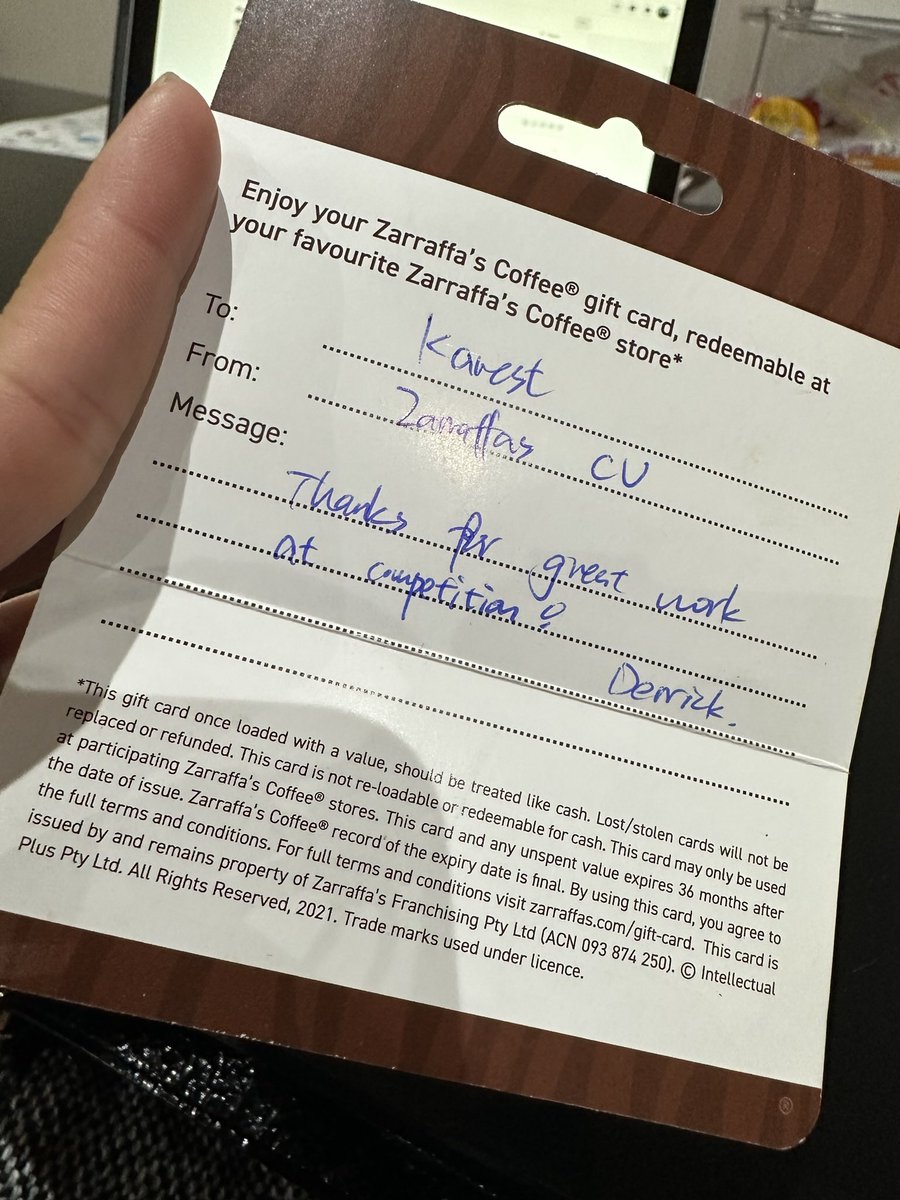 Enjoy your Zarraffa's Coffee® gift card, redeemable at
your favourite Zarraffa's Coffee® store*
To: Karest
From: Zarraffas CU
Message:
Thanks for great work
at competition!
Derrick.
*This gift card once loaded with a value, should be treated like cash. Lost/stolen cards will not be
replaced or refunded. This card is not re-loadable or redeemable for cash. This card may only be used
at participating Zarraffa's Coffee® stores. This card and any unspent value expires 36 months after
the date of issue. Zarraffa's Coffee® record of the expiry date is final. By using this card, you agree to
the full terms and conditions. For full terms and conditions visit zarraffas.com/gift-card. This card is
issued by and remains property of Zarraffa's Franchising Pty Ltd (ACN 093 874 250). © Intellectual
Plus Pty Ltd. All Rights Reserved, 2021. Trade marks used under licence.
®